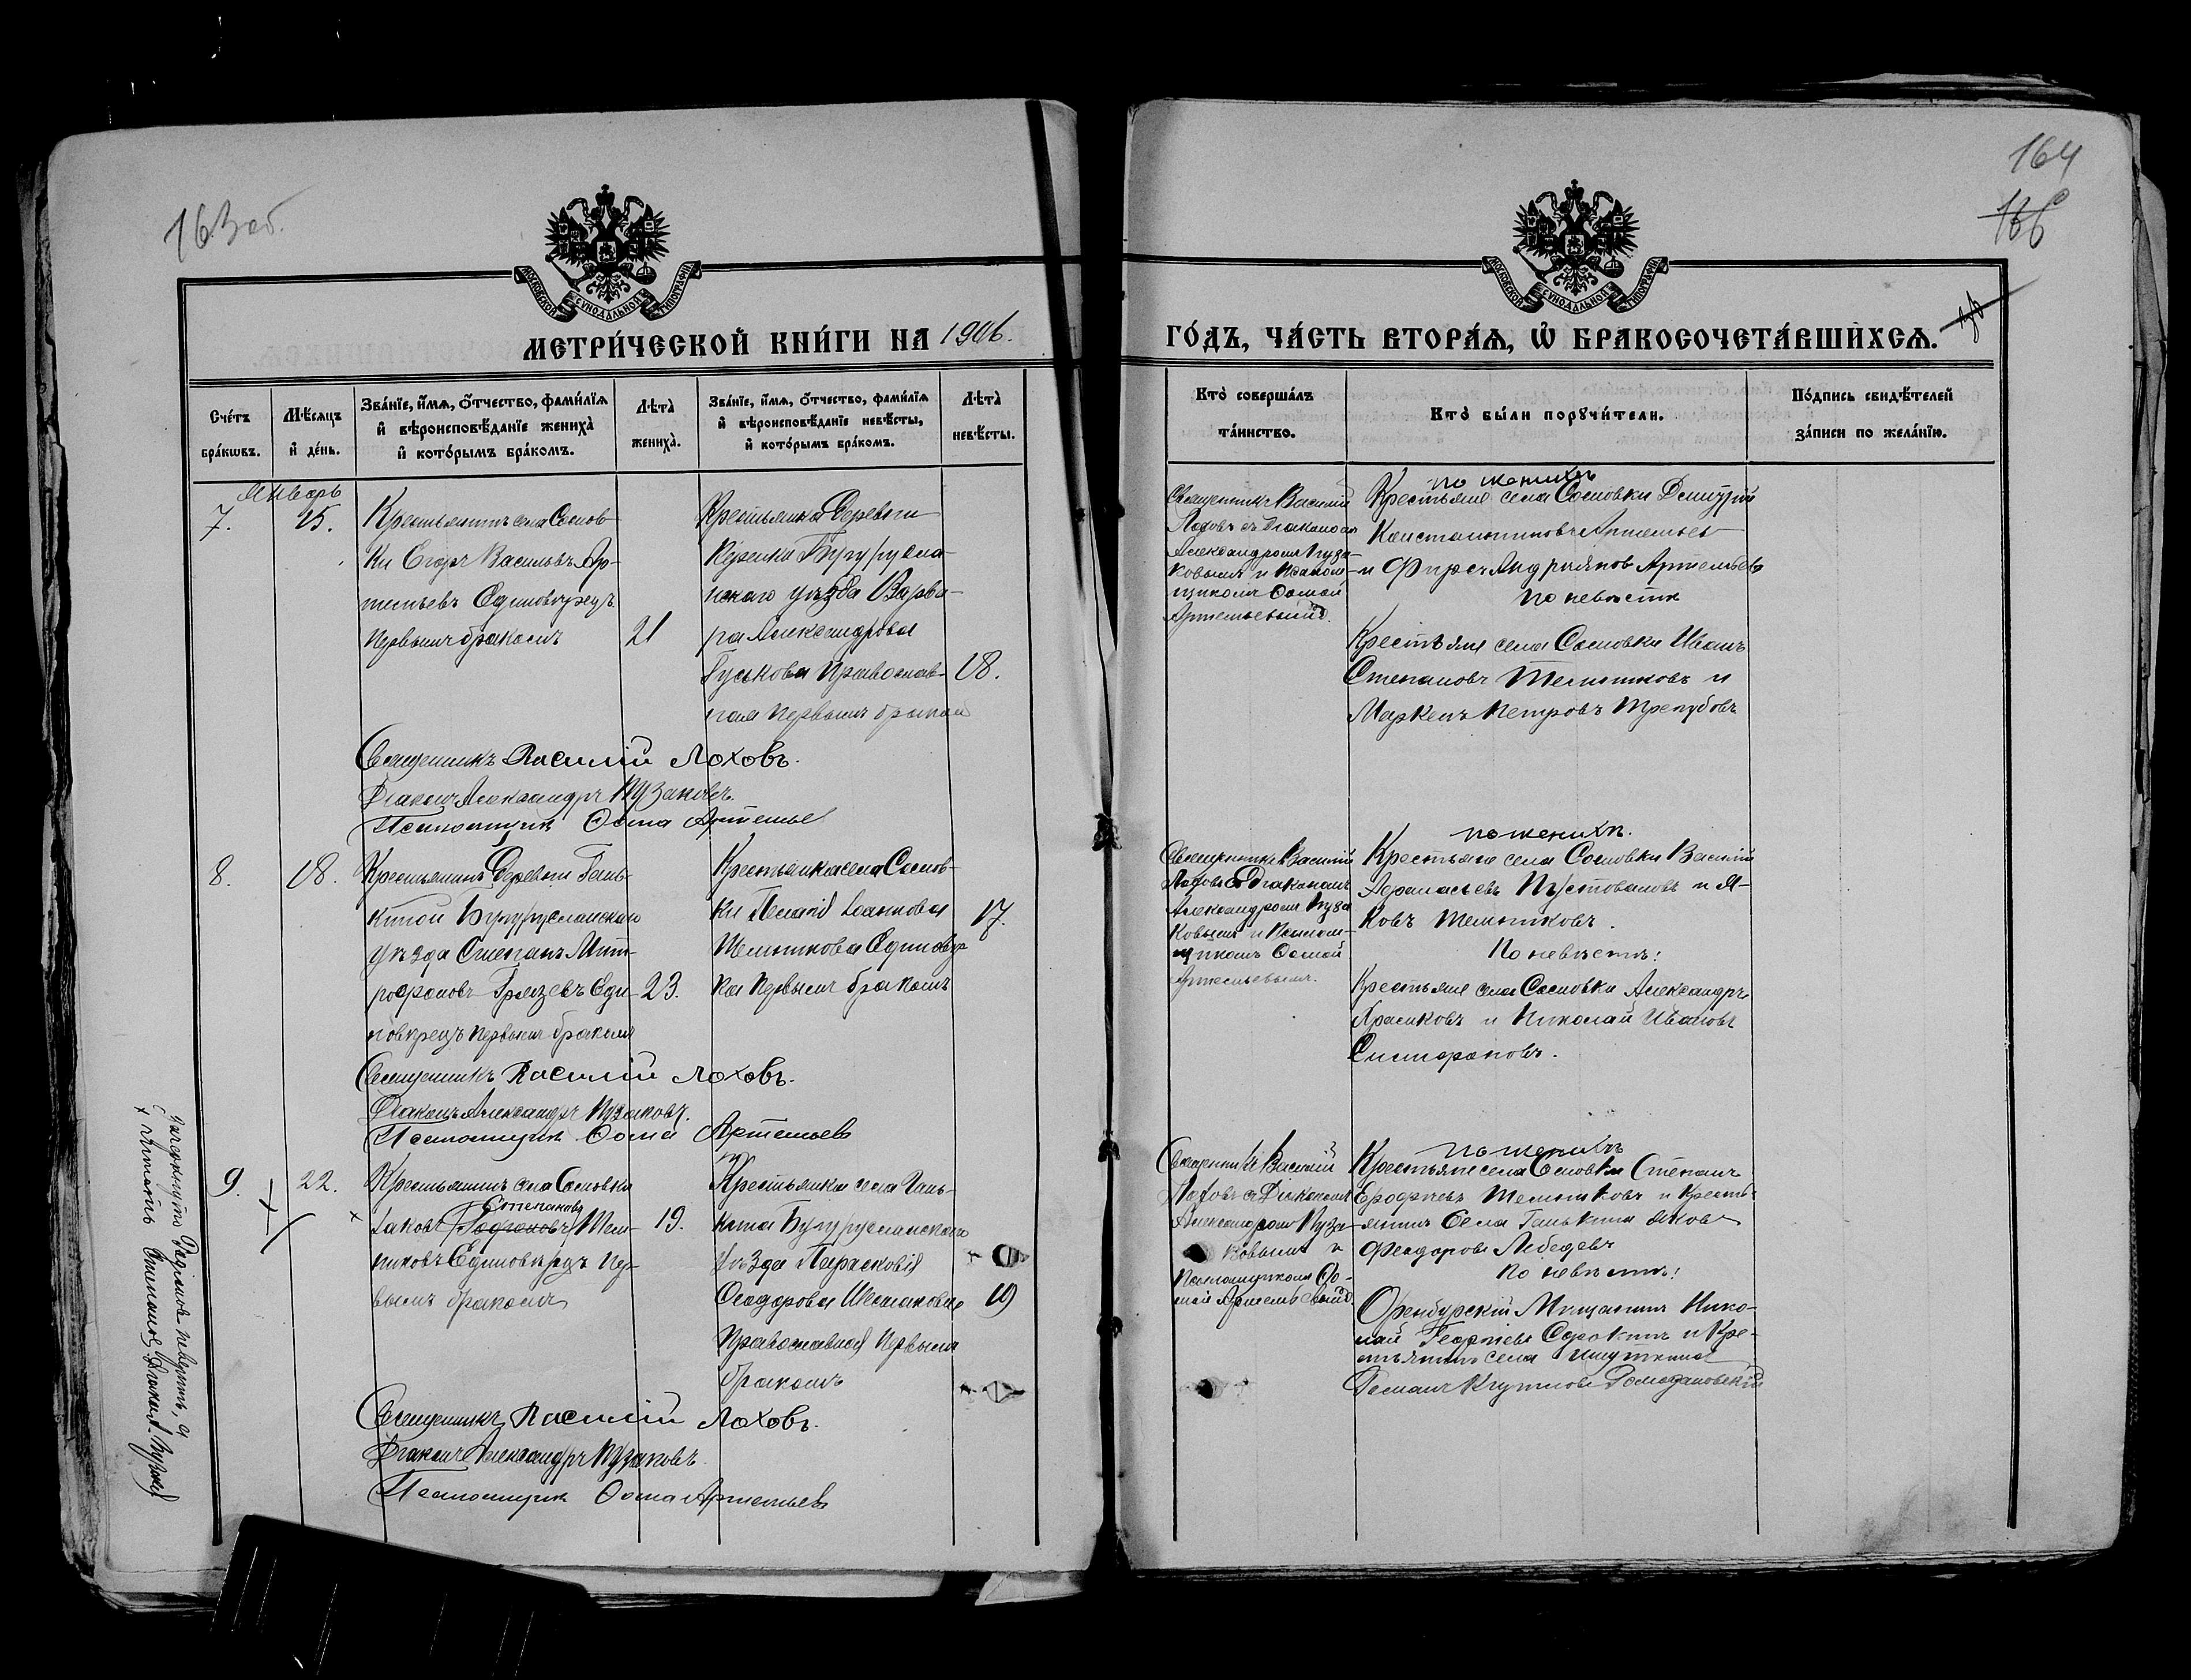 163 об.
164
166
МОСКОВСКОЙ СѴНОДАЛЬНОЙ ТИПОГРАФІИ
МОСКОВСКОЙ СѴНОДАЛЬНОЙ ТИПОГРАФІИ
МЕТРИ́ЧЕСКОЙ КНИ́ГИ НА 1906.
ГО́ДЪ, ЧА́СТЬ ВТОРА́Ѧ, Ѡ҆ БРАКОСОЧЕТА́ВШИХСѦ.
Сче́тъ бра́кѡвъ.
Мѣ́сяцъ и҆ де́нь.
Зва́нїе, и҆́мѧ, ѻ҆́тчество, фами́лїѧ
и҆ вѣроисповѣ́данїе жениха̀
и҆ кото́рымъ бра́комъ.
Лѣта̀ жениха̀.
Зва́нїе, и҆́мѧ, ѻ҆́тчество, фами́лїѧ
и҆ вѣроисповѣ́данїе невѣ́сты,
и҆ кото́рымъ бра́комъ.
Лѣта̀ невѣ́сты.
Кто̀ соверша́лъ та́инство.
Кто̀ бы́ли порꙋчи́тели.
По́дпись свидѣ́телей за́писи по жела́нїю.
Январь
7.
15.
Крестьянинъ села Соснов-
ки Егоръ Васильевъ Ар-
темьевъ Единовѣрецъ
первымъ бракомъ
21
Крестьянка деревни
Бугурусла-
нскаго уѣзда Варва-
ра Александрова
Гуськова Православ-
ная первымъ бракомъ
18.
Священникъ Василій
Лоховъ съ Діакономъ
Александромъ Пуза-
ковымъ и Псаломъ-
щикомъ Ѳомой
Артемьевымъ.
по женихѣ
Крестьяне села Сосновки Димитрій
Константиновъ Артемьевъ
и Фирсъ Андріяновъ Артемьевъ
по невѣстѣ
Крестьяне села Сосновки Иванъ
Степановъ Мельниковъ и
Маркелъ Петровъ
Священникъ Василій Лоховъ.
Діаконъ Александръ Пузаковъ.
Псаломщикъ Ѳома Артемьевъ
8.
18.
Крестьянинъ деревни Гань-
киной Бугурусланскаго
уѣзда Степанъ Мит-
рофановъ Грязевъ Еди-
новѣрецъ первымъ бракомъ
23.
Крестьянка села Соснов-
ки Пелагія Іоаннова
Мельникова Единовѣр
ка первымъ бракомъ
17.
Священникъ Василій
Лоховъ съ Діакономъ
Александромъ Пуза
ковымъ и Псалом-
щикомъ Ѳомой
Артемьевымъ.
по женихѣ.
Крестьяне села Сосновки Василій
Афанасьевъ Пустоваловъ и Я-
ковъ Мельниковъ.
По невѣстѣ:
Крестьяне села Сосновки Александръ
и Николай Ивановъ
Священникъ Василій Лоховъ.
Діаконъ Александръ Пузаковъ.
Псаломщикъ Ѳома Артемьевъ
9.
22.
Крестьянинъ села Сосновки
Степановъ
Іаковъ Мель-
никовъ Единовѣрецъ пер-
вымъ бракомъ
19.
Крестьянка села Гань-
кина Бугурусланскаго
уѣзда Парасковія
Ѳеодорова Шестакова
Православная первымъ
бракомъ
19
Священникъ Василій
Лоховъ съ Діакономъ
Александромъ Пуза-
ковымъ и
Псаломщикомъ Ѳо-
мой Артемьевымъ.
по женихѣ
Крестьяне села Сосновки Степанъ
Ерофеевъ Мельниковъ и Кресть-
янинъ села Ганькина Яковъ
Феодоровъ Лебедевъ
по невѣстѣ:
Оренбургскій Мещанинъ Нико-
лай Георгіевъ Сорокинъ и Кре-
стьянинъ села
Романъ
Священникъ Василій Лоховъ.
Діаконъ Александръ Пузаковъ.
Псаломщикъ Ѳома Артемьевъ
читать Степановъ. Діаконъ Пузаковъ